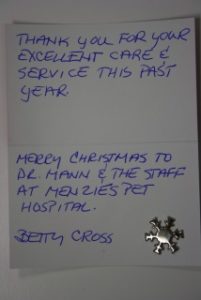 THANK YOU FOR YOUR
EXCELLENT CARE &
SERVICE THIS PAST
YEAR.
MERRY CHRISTMAS TO
DR. MANN & THE STAFF
AT MENZIE'S PET
HOSPITAL.
BETTY CROSS